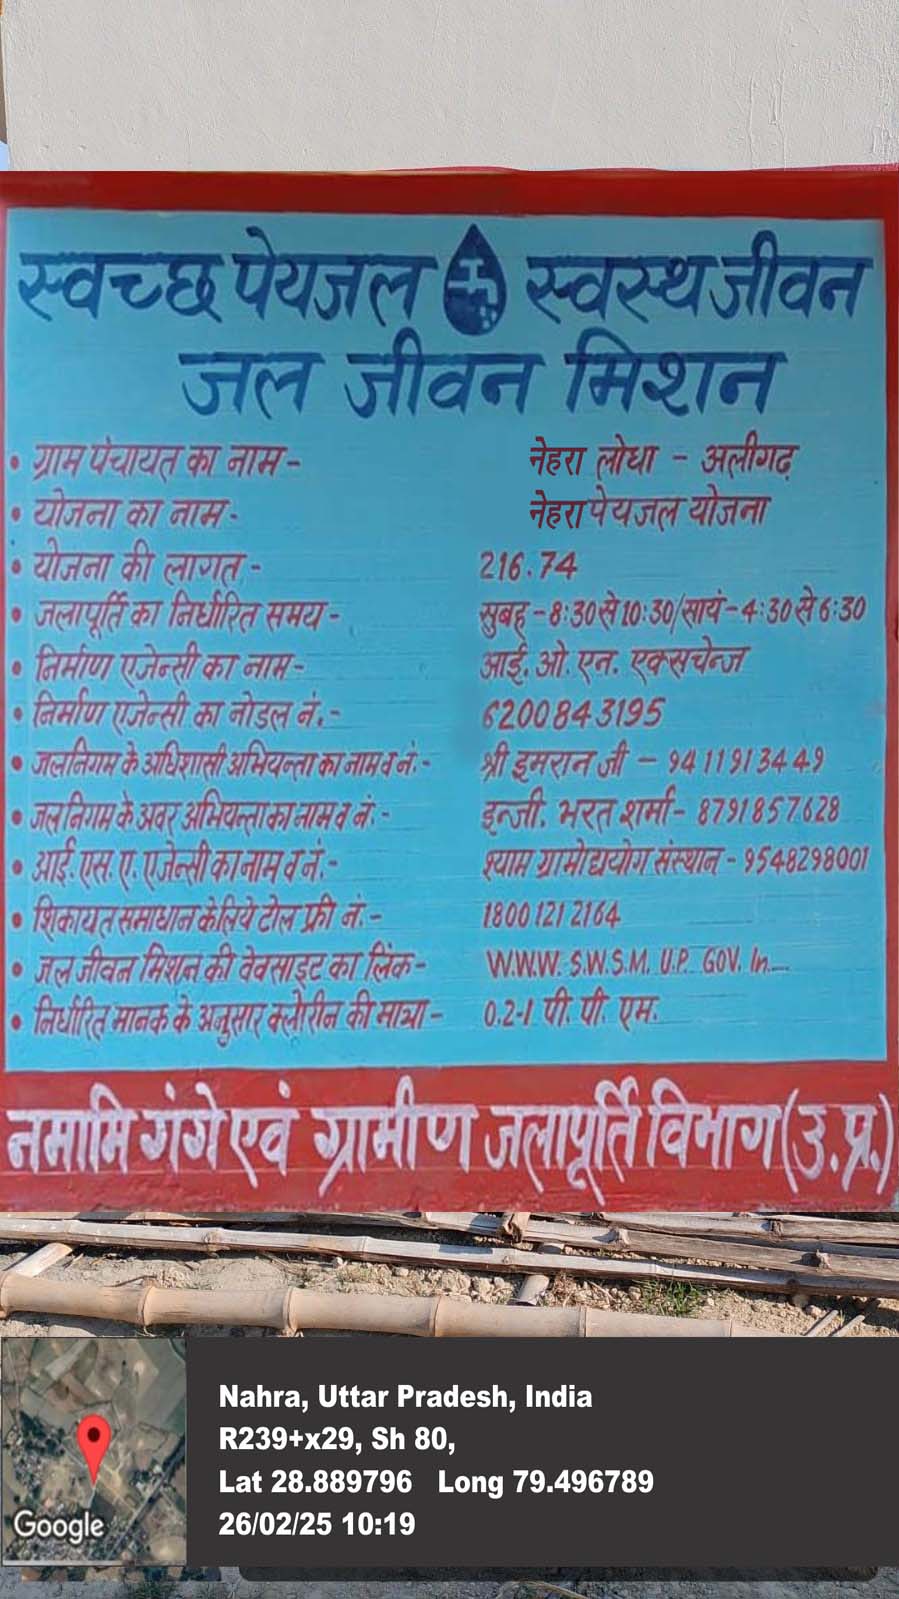 स्वच्छ पेयजल स्वस्थ जीवन
जल जीवन मिशन
• ग्राम पंचायत का नाम - नेहरा लोधा - अलीगढ़
• योजना का नाम - नेहरा पेयजल योजना
• योजना की लागत - 216.74
• जलापूर्ति का निर्धारित समय - सुबह - 8:30 से 10:30/सायं - 4:30 से 6:30
• निर्माण एजेन्सी का नाम - आई. ओ. एन. एक्सचेन्ज
• निर्माण एजेन्सी का नोडल नं. - 6200843195
• जलनिगम के अधिशासी अभियन्ता का नाम व नं. - श्री इमरान जी - 9411913449
• जलनिगम के अवर अभियन्ता का नाम व नं. - इन्जी. भरत शर्मा - 8791857628
• आई. एस. ए. एजेन्सी का नाम व नं. - श्याम ग्रामोद्ययोग संस्थान - 9548298001
• शिकायत समाधान के लिये टोल फ्री नं. - 1800 121 2164
• जल जीवन मिशन की वेवसाइट का लिंक - W.W.W. S.W.S.M. U.P. GOV. In....
• निर्धारित मानक के अनुसार क्लोरीन की मात्रा - 0.2-1 पी. पी. एम.
नमामि गंगे एवं ग्रामीण जलापूर्ति विभाग (उ.प्र.)
Nahra, Uttar Pradesh, India
R239+x29, Sh 80,
Lat 28.889796 Long 79.496789
26/02/25 10:19
Google